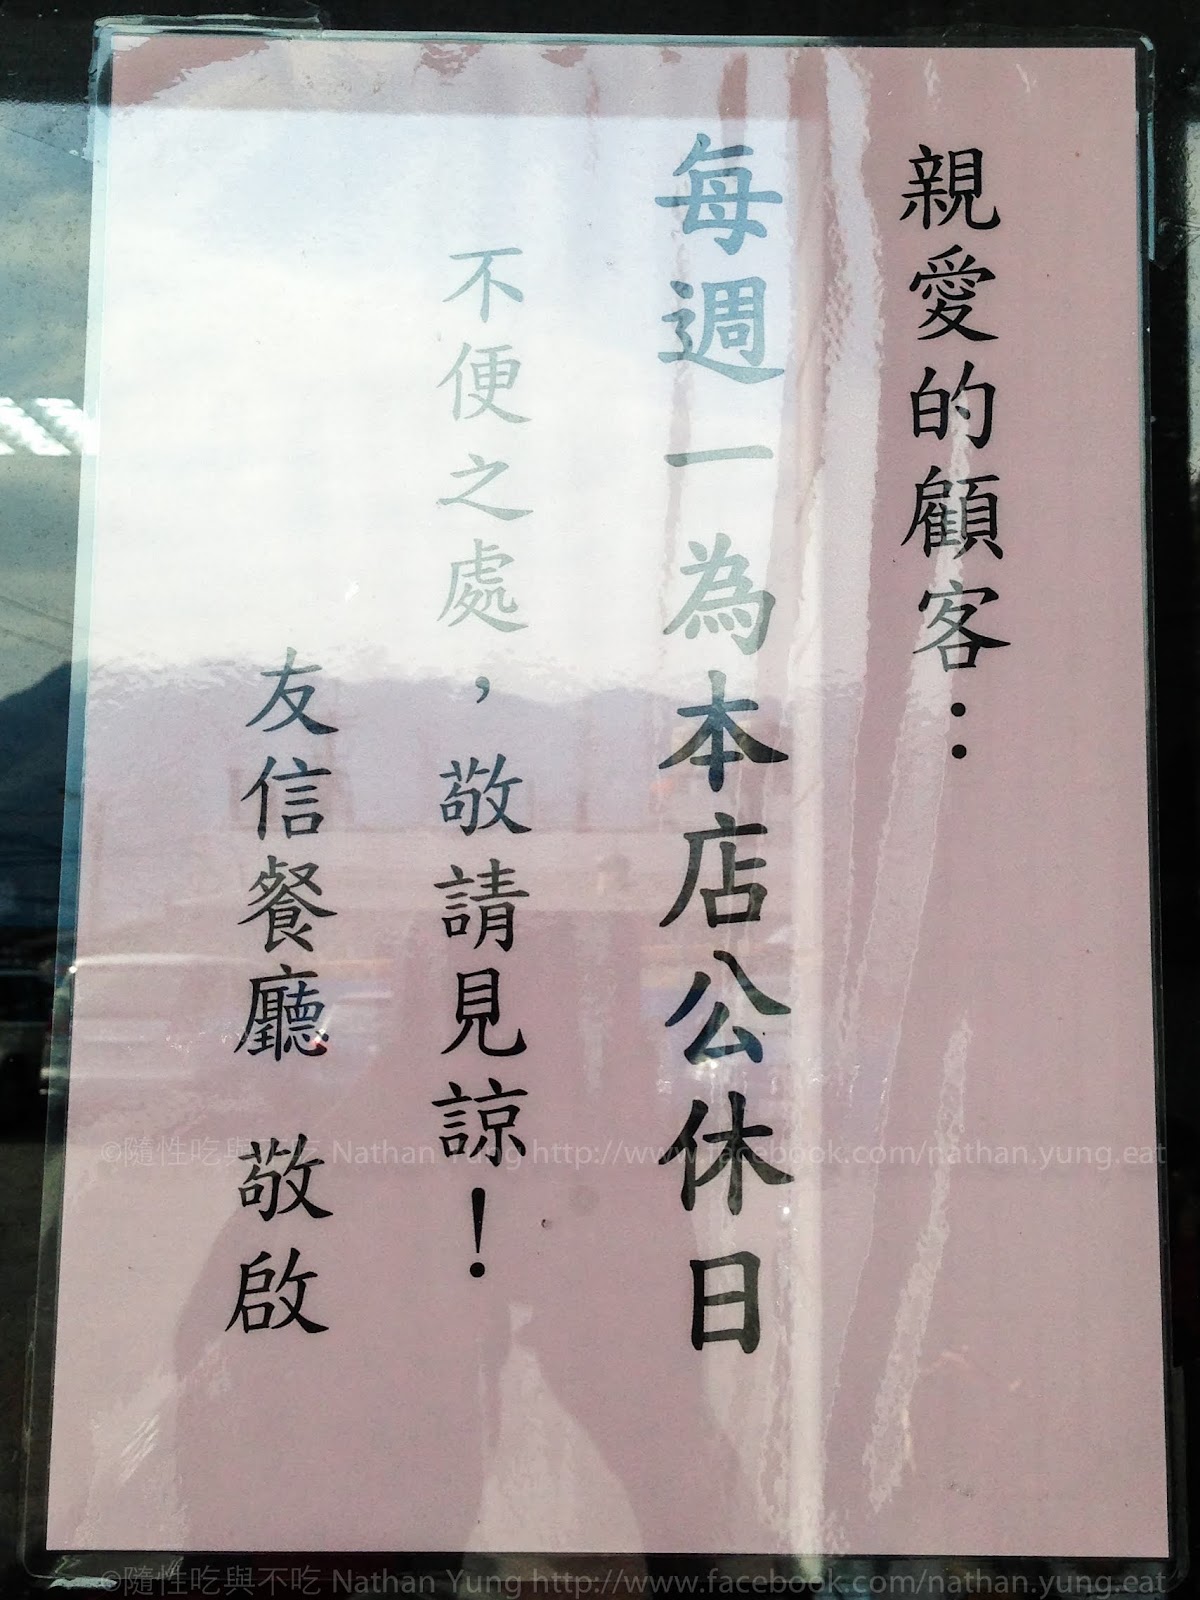 親愛的顧客：
每週一為本店公休日
不便之處，敬請見諒！
友信餐廳 敬啟
©隨性吃與不吃 Nathan Yung http://www.facebook.com/nathan.yung.eat
©隨性吃與不吃 Nathan Yung http://www.facebook.com/nathan.yung.eat